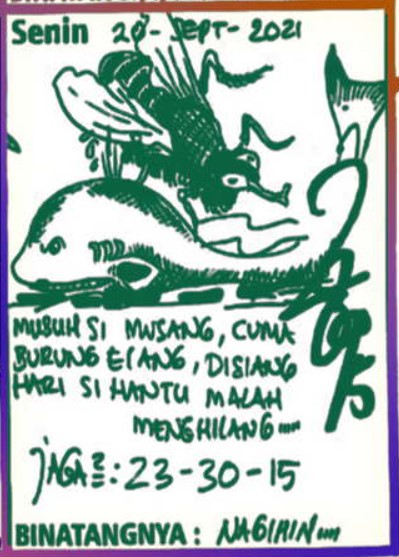 Senin 20-SEPT-2021
MUSUH SI MUSANG, CUMA
BURUNG ELANG, DISIANG
HARI SI HANTU MALAH
MENGHILANG....
JAGA2: 23-30-15
BINATANGNYA: NAGIHIN....